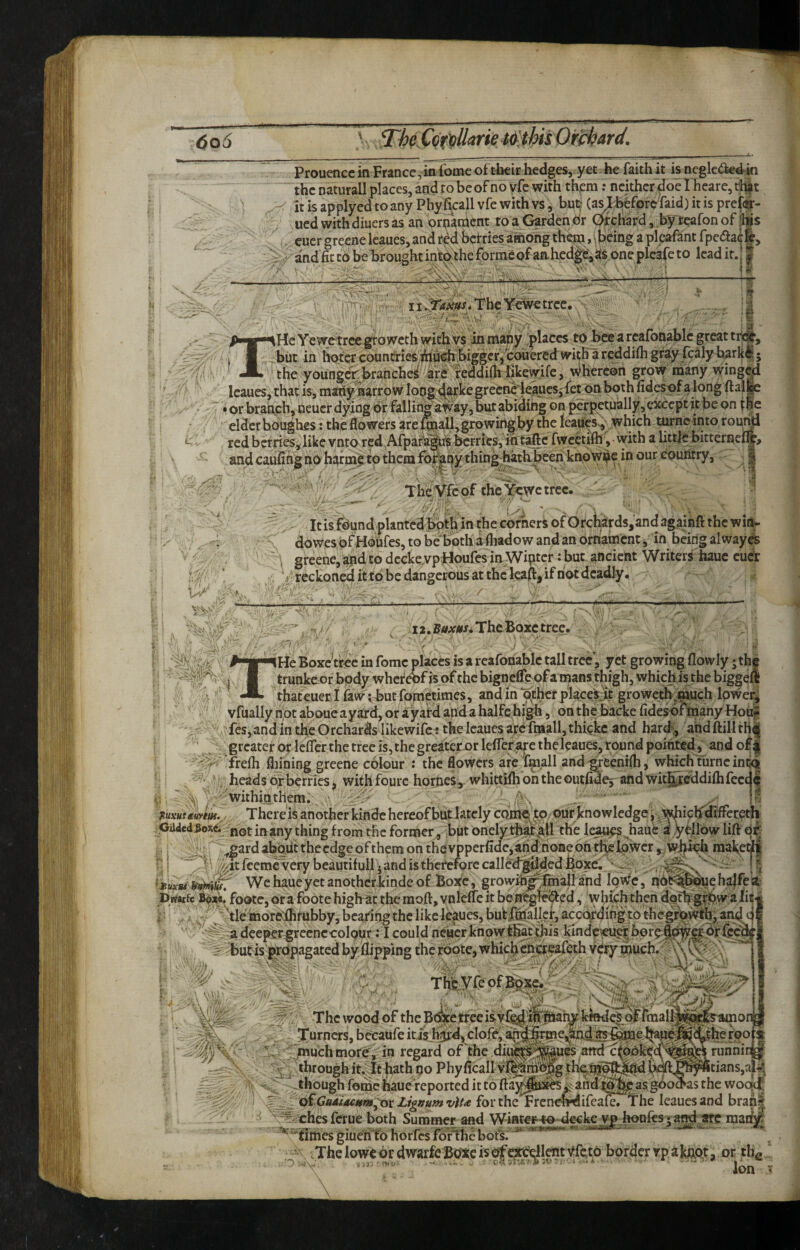 606 The Corollarie to this Orchard.
Prouence in France, in some of their hedges, yet he saith it is neglected in
the naturall places, and to be of no vse with them: neither doe I heare, that
it is applyed to any Physicall vse with vs, but (as I before said) it is prefer-
ued with diuers as an ornament to a Garden or Orchard, by reason of his
euer greene leaues, and red berries among them, being a pleasant spectacle,
and fit to be brought into the forme of an hedge, as one please to lead it.
11. Taxus. The Yewe tree.
THe Yewe tree groweth with vs in many places to bee a reasonable great tree,
but in hoter countries much bigger, couered with a reddish gray scaly barke;
the younger branches are reddish likewise, whereon grow many winged
leaues, that is, many narrow long darke greene leaues, set on both sides of a long stalke
or branch, neuer dying or falling away, but abiding on perpetually, except it be on the
elder boughes: the flowers are small, growing by the leaues, which turne into round
red berries, like vnto red Asparagus berries, in taste sweetish, with a little bitternesse,
and causing no harme to them for any thing hath been knowne in our country,
The Vse of the Yewe tree.
It is found planted both in the corners of Orchards, and against the win-
dowes of Houses, to be both a shadow and an ornament, in being alwayes
greene, and to decke vp Houses in Winter: but ancient Writers haue euer
reckoned it to be dangerous at the least, if not deadly.
12. Buxus. The Boxe tree.
THe Boxe tree in some places is a reasonable tall tree, yet growing slowly; the
trunke or body whereof is of the bignesse of a mans thigh, which is the biggest
that euer I saw: but sometimes, and in other places it groweth much lower,
vsually not aboue a yard, or a yard and a halfe high, on the backe sides of many Hou-
ses, and in the Orchards likewise: the leaues are small, thicke and hard, and still the
greater or lesser the tree is, the greater or lesser are the leaues, round pointed, and of a
fresh shining greene colour: the flowers are small and greenish, which turne into
heads or berries, with foure hornes, whittish on the outside, and with reddish seede
within them.
Buxus aureus.
Gilded Boxe.
There is another kinde hereof but lately come to our knowledge, which differeth
not in any thing from the former, but onely that all the leaues haue a yellow list or
gard about the edge of them on the vpperside, and none on the lower, which maketh
it seeme very beautifull; and is therefore called gilded Boxe.
Buxus humilis.
Dwarfe Boxe.
We haue yet another kinde of Boxe, growing small and lowe, not aboue halfe a
foote, or a foote high at the most, vnlesse it be neglected, which then doth grow a lit-
tle more shrubby, bearing the like leaues, but smaller, according to the growth, and of
a deeper greene colour: I could neuer know that this kinde euer bore flower or seede,
but is propagated by slipping the roote, which encreaseth very much.
The Vse of Boxe.
The wood of the Boxe tree is vsed in many kindes of small workes among
Turners, because it is hard, close, and firme, and as some haue said, the roots
much more, in regard of the diuers waues and crooked veines running
through it. It hath no Physicall vse among the most and best Physitians, al-
though some haue reported it to stay fluxes, and to be as good as the wood
of Guaiacum, or Lignum vitæ for the French disease. The leaues and bran-
ches serue both Summer and Winter to decke vp houses; and are many
times giuen to horses for the bots.
The lowe or dwarfe Boxe is of excellent vse to border vp a knot, or the
lon